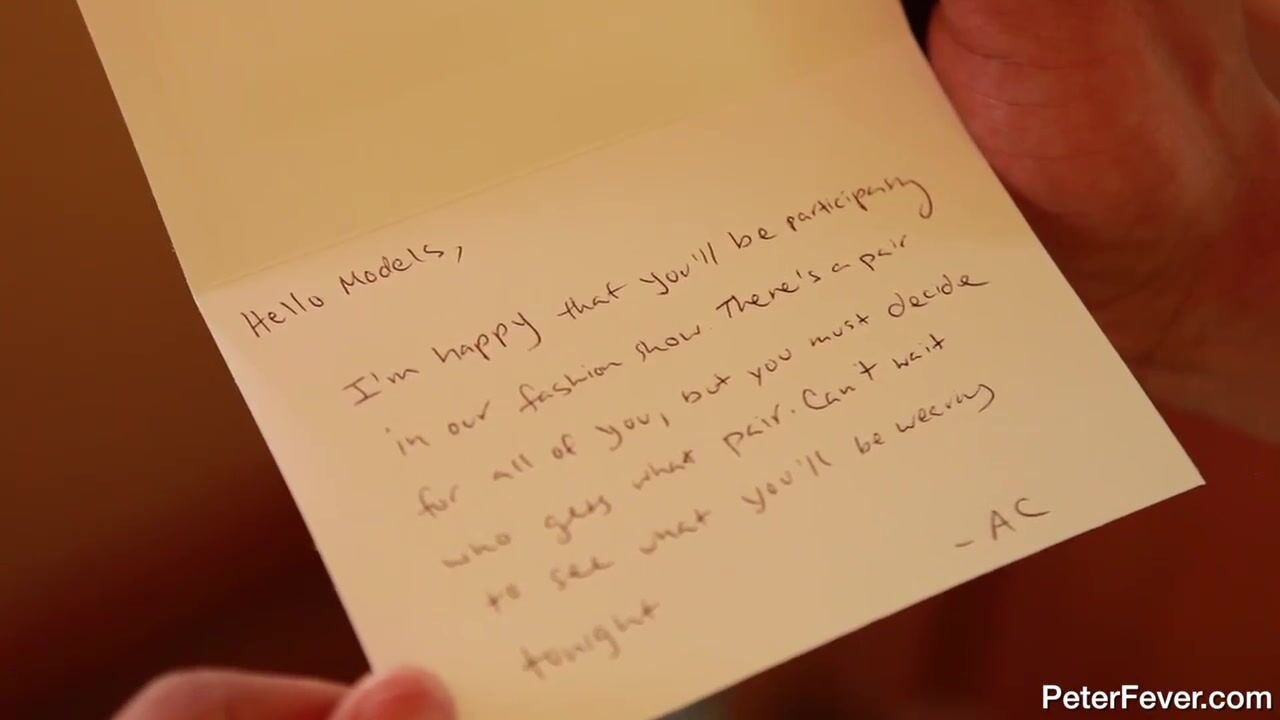 Hello Models,
I'm happy that you'll be participating
in our fashion show. There's a pair
for all of you, but you must decide
who gets what pair. Can't wait
to see what you'll be wearing
tonight
- AC
PeterFever.com